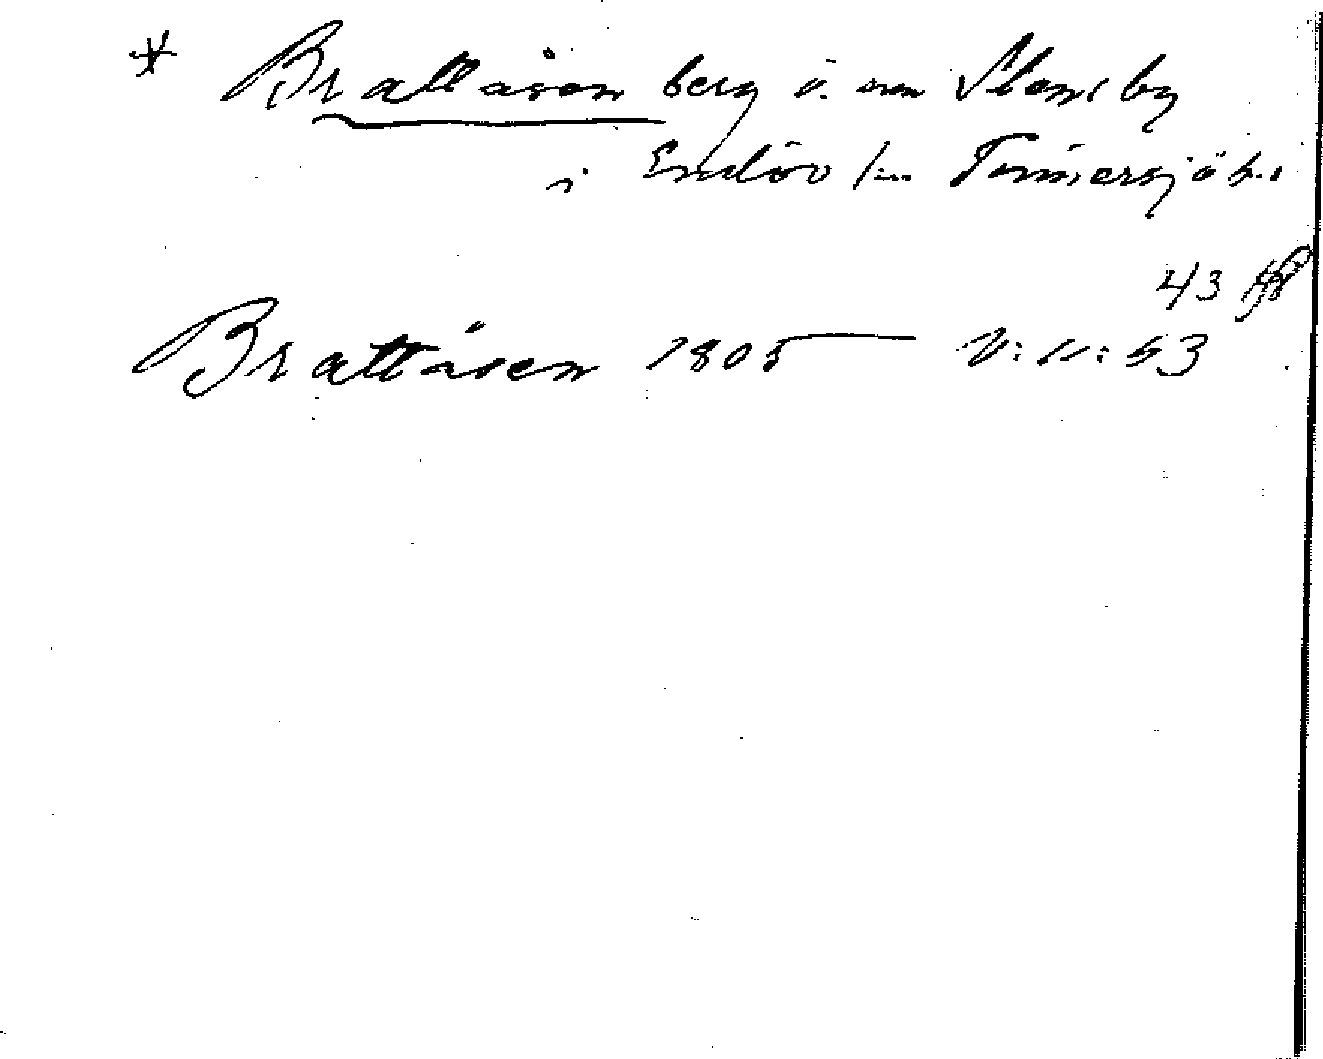 * Brattåsen berg ö. om Slomsby
i Enslöv /: Tönnersjö h.
43
Brattåsen 1805 V: 11: 53